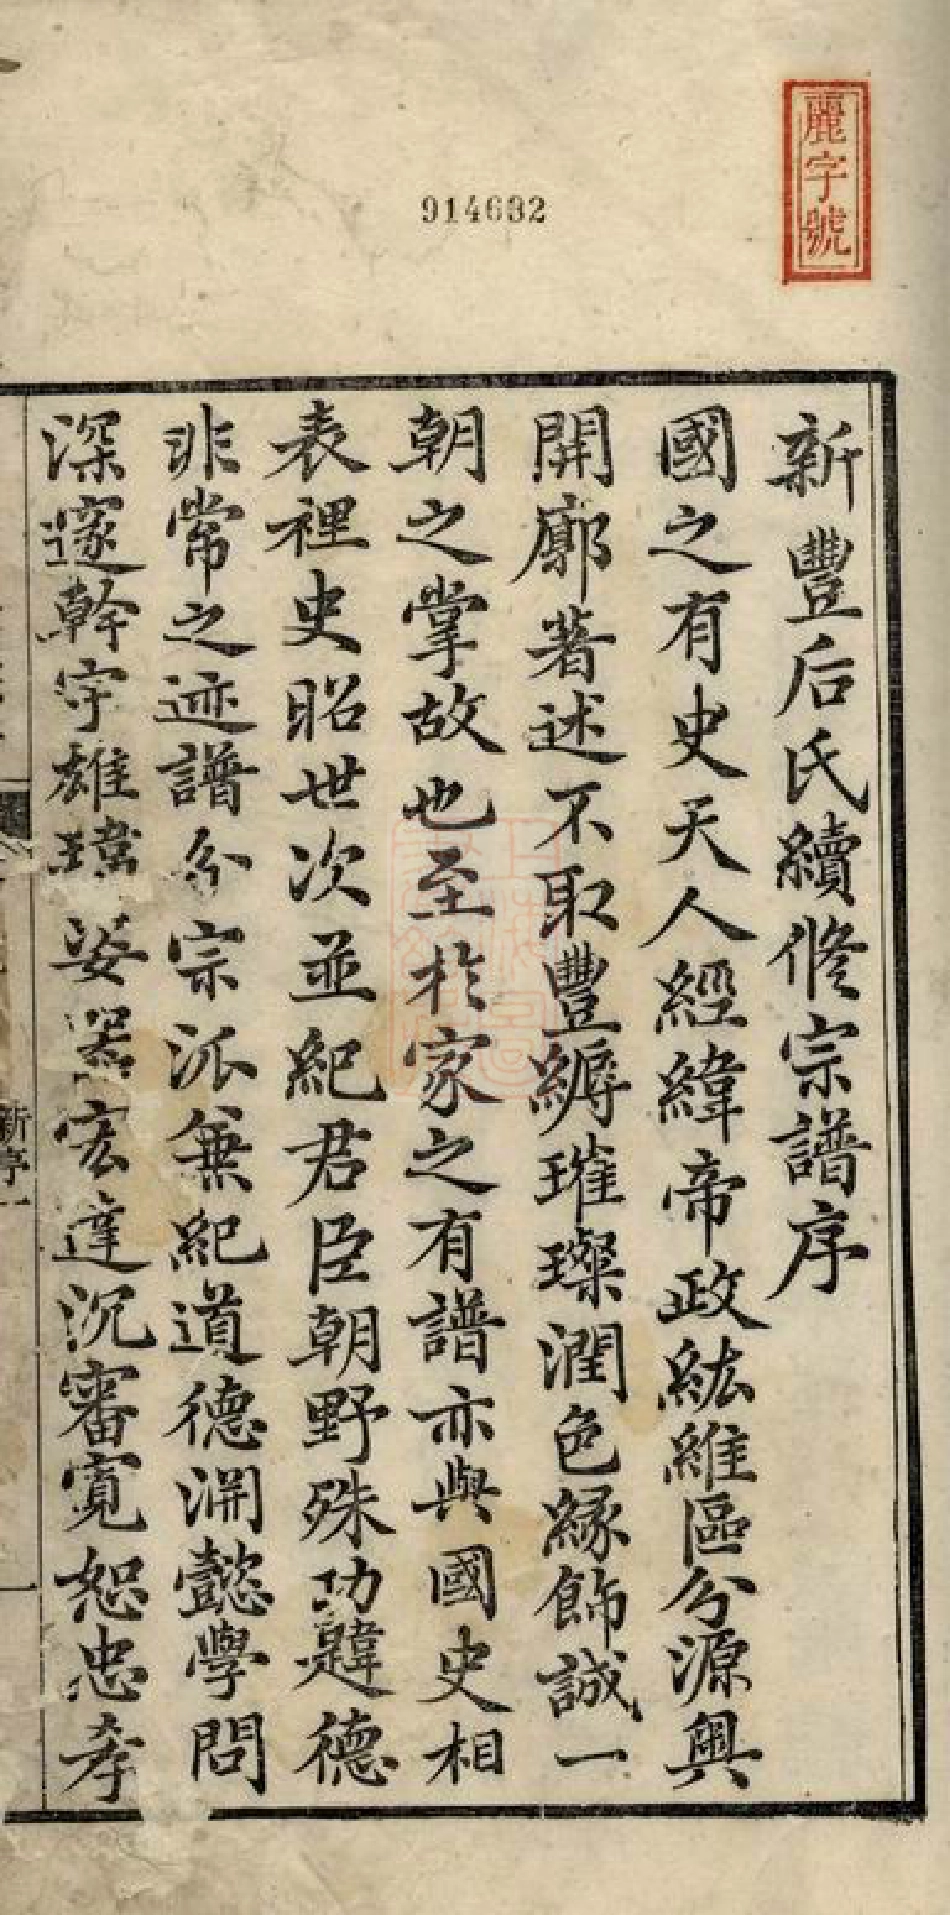 麗字號
914692
新豐后氏續修宗譜序
國之有史天人經緯帝政紘維區分源輿
開廓著述不取豐縟璀璨潤色緣飾誠一
朝之掌故也至於家之有譜亦與國史相
表裡史昭世次並紀君臣朝野殊功韙德
非常之迹譜分宗派兼紀道德淵懿學問
深邃幹守雄瑋姿器宏達沉審寬恕忠孝
新序一